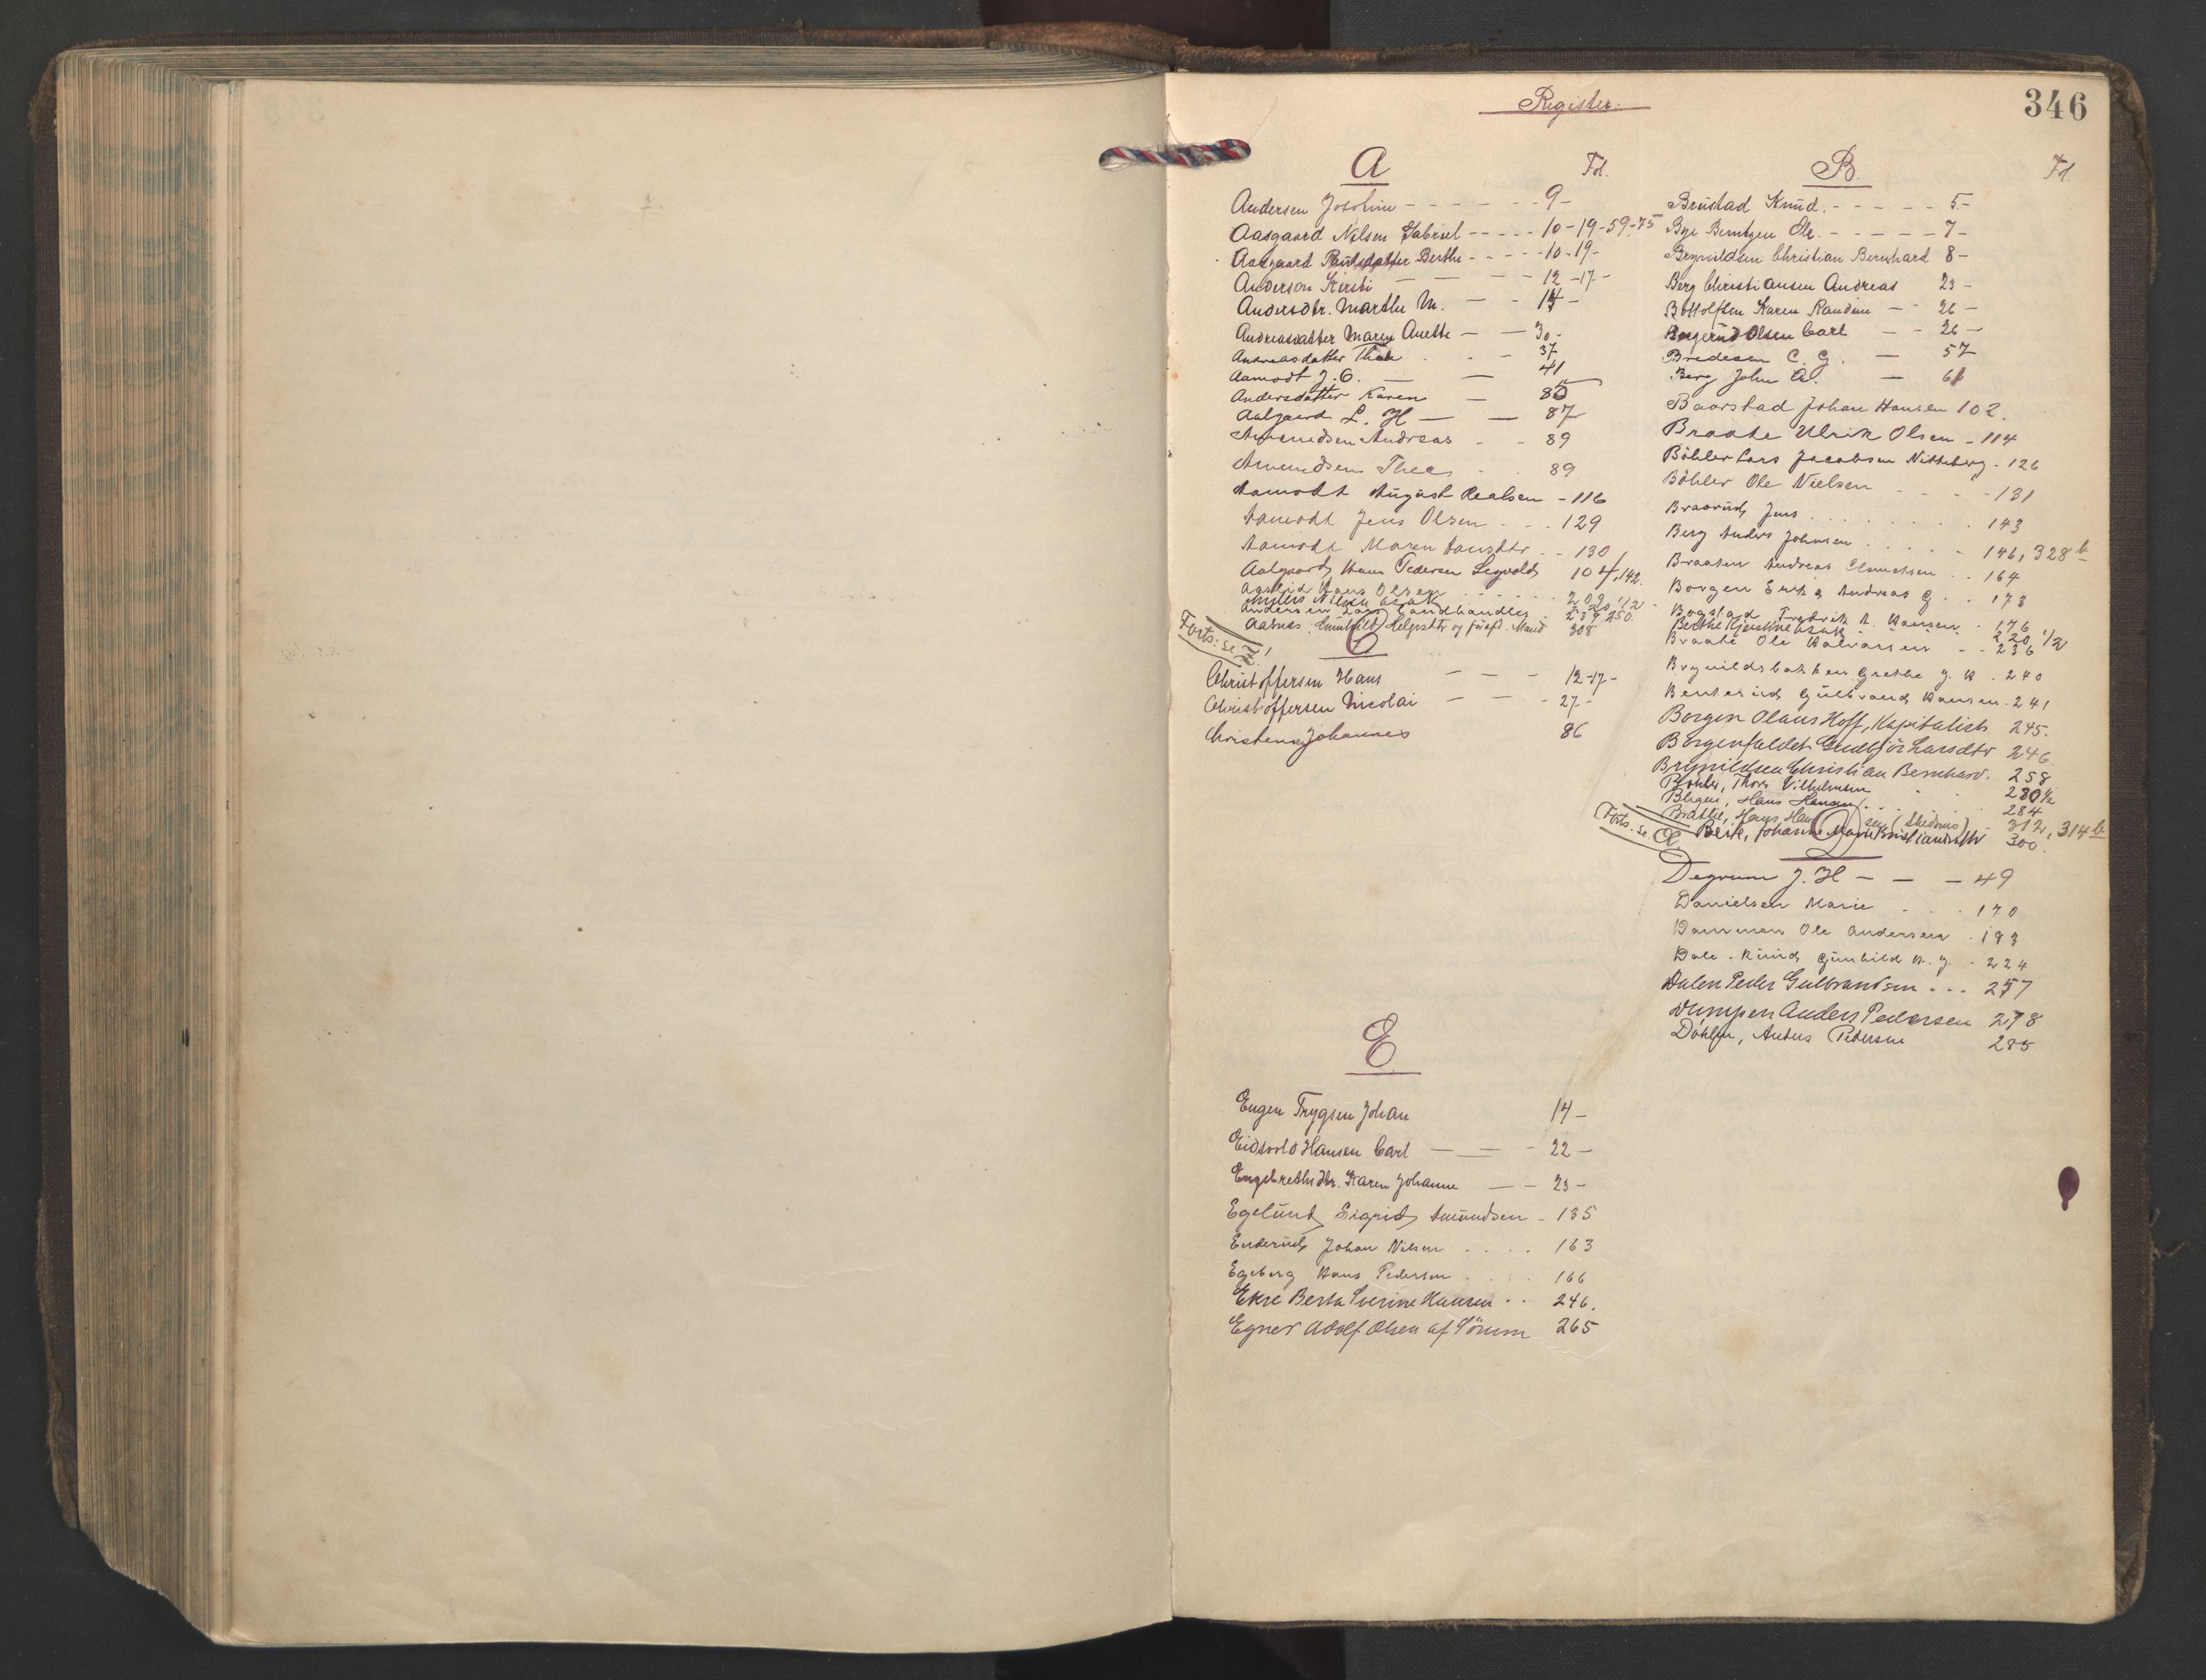 Register.
346
A
Fol.
Andersen Josefine - - - - - - 9 -
Aasgaard Nilsen Gabriel - - - - - 10-19-59-75
Aasgaard Paulsdatter Berthe - - - - 10-19-
Anderson Kirsti - - - 12-17-
Andersdtr. Marthe M. - - 14 -
Andreasdatter Maren Anette - - 30 -
Andreasdatter Thea - - 37
Aamodt J. O. - - 41
Andersdatter Karen - 85
Aalgaard L. H - - 87
Amundsen Andreas - - 89
Amundsen Thea - - 89
Aamodt August Realsen - 116
Aamodt Jens Olsen . . . 129
Aamodt Maren Hansdtr. - - 130
Aalgaard Hans Pedersen Segvold 104, 142.
Hans Olsen . . . . 209
Nilsen 220 1/2
Andersen Lars Landhandler 239, 250.
Aasnes, Gunhild Helgesdtr og Mand 308
Forts. se
C
Christoffersen Hans - - - 12-17-
Christoffersen Nicolai - - - 27 -
Christensen Johannes 86
E
Engen Trygsen Johan 14 -
Eidsvold Hansen Carl - - - 22 -
Engebrethsdtr. Karen Johanne - - 23 -
Egelund Sigrid Amundsen - 135
Enderud Johan Nilsen . . . . 163
Egeberg Hans Pedersen . . . 166
Ekre Berth Severine Hansen . . 246.
Egner Adolf Olsen af Sörum 265
B.
Fol.
Brustad Knud. - - - - - 5 -
Bye Berntzen Ole. - - - - - 7 -
Brynildsen Christian Bernhard 8 -
Berg Christiansen Andreas 23 -
Bottolfsen Karen Randine - - 26 -
Olsen Carl - - 26 -
Bredesen C. G. - 57
Berg John A. - 61
Baarstad Johan Hansen 102.
Braate Ulrik Olsen - 114
Böhler Lars Jacobsen Nitteberg - 126
Böhler Ole Nielsen - - - 131
Braarud Jens . . . . . . 143
Berg Anders Johnsen . . . . . 146, 328 b
Braaten Andreas Clemetsen . . 164
Borgen Erik Andreas G . . 173
Bogstad Fredrik A. Hansen - 176
Berthe 220 1/2
Braate Ole Halvorsen - - 236
Brynildsbakken Grethe J. H. 240
Benterud Gulbrand Hansen. 241
Borgen Olaus Hoff, Kapitalist 245.
Borgenfaldet Gudbjör Larsdtr 246.
Brynildsen Christian Bernhard. 258
Böhler, Thorv. Vilhelmsen 280 1/2
Blegen, Hans Hansen . . . 284
Bratlie, Hans Hansen (Skedsmo) 312, 314 b
Berk, Johanne Marie Kristiansdtr 300.
Forts. se Æ
D
Degrum J. H - - - 49
Danielsen Marie . . . 170
Dammen Ole Andersen . 193
Dale-Ruud Gunhild H. J. - 224
Dalen Peder Gulbrandsen . . . 257
Dumpen Anders Pedersen 278
Döhlen, Anders Pedersen 285